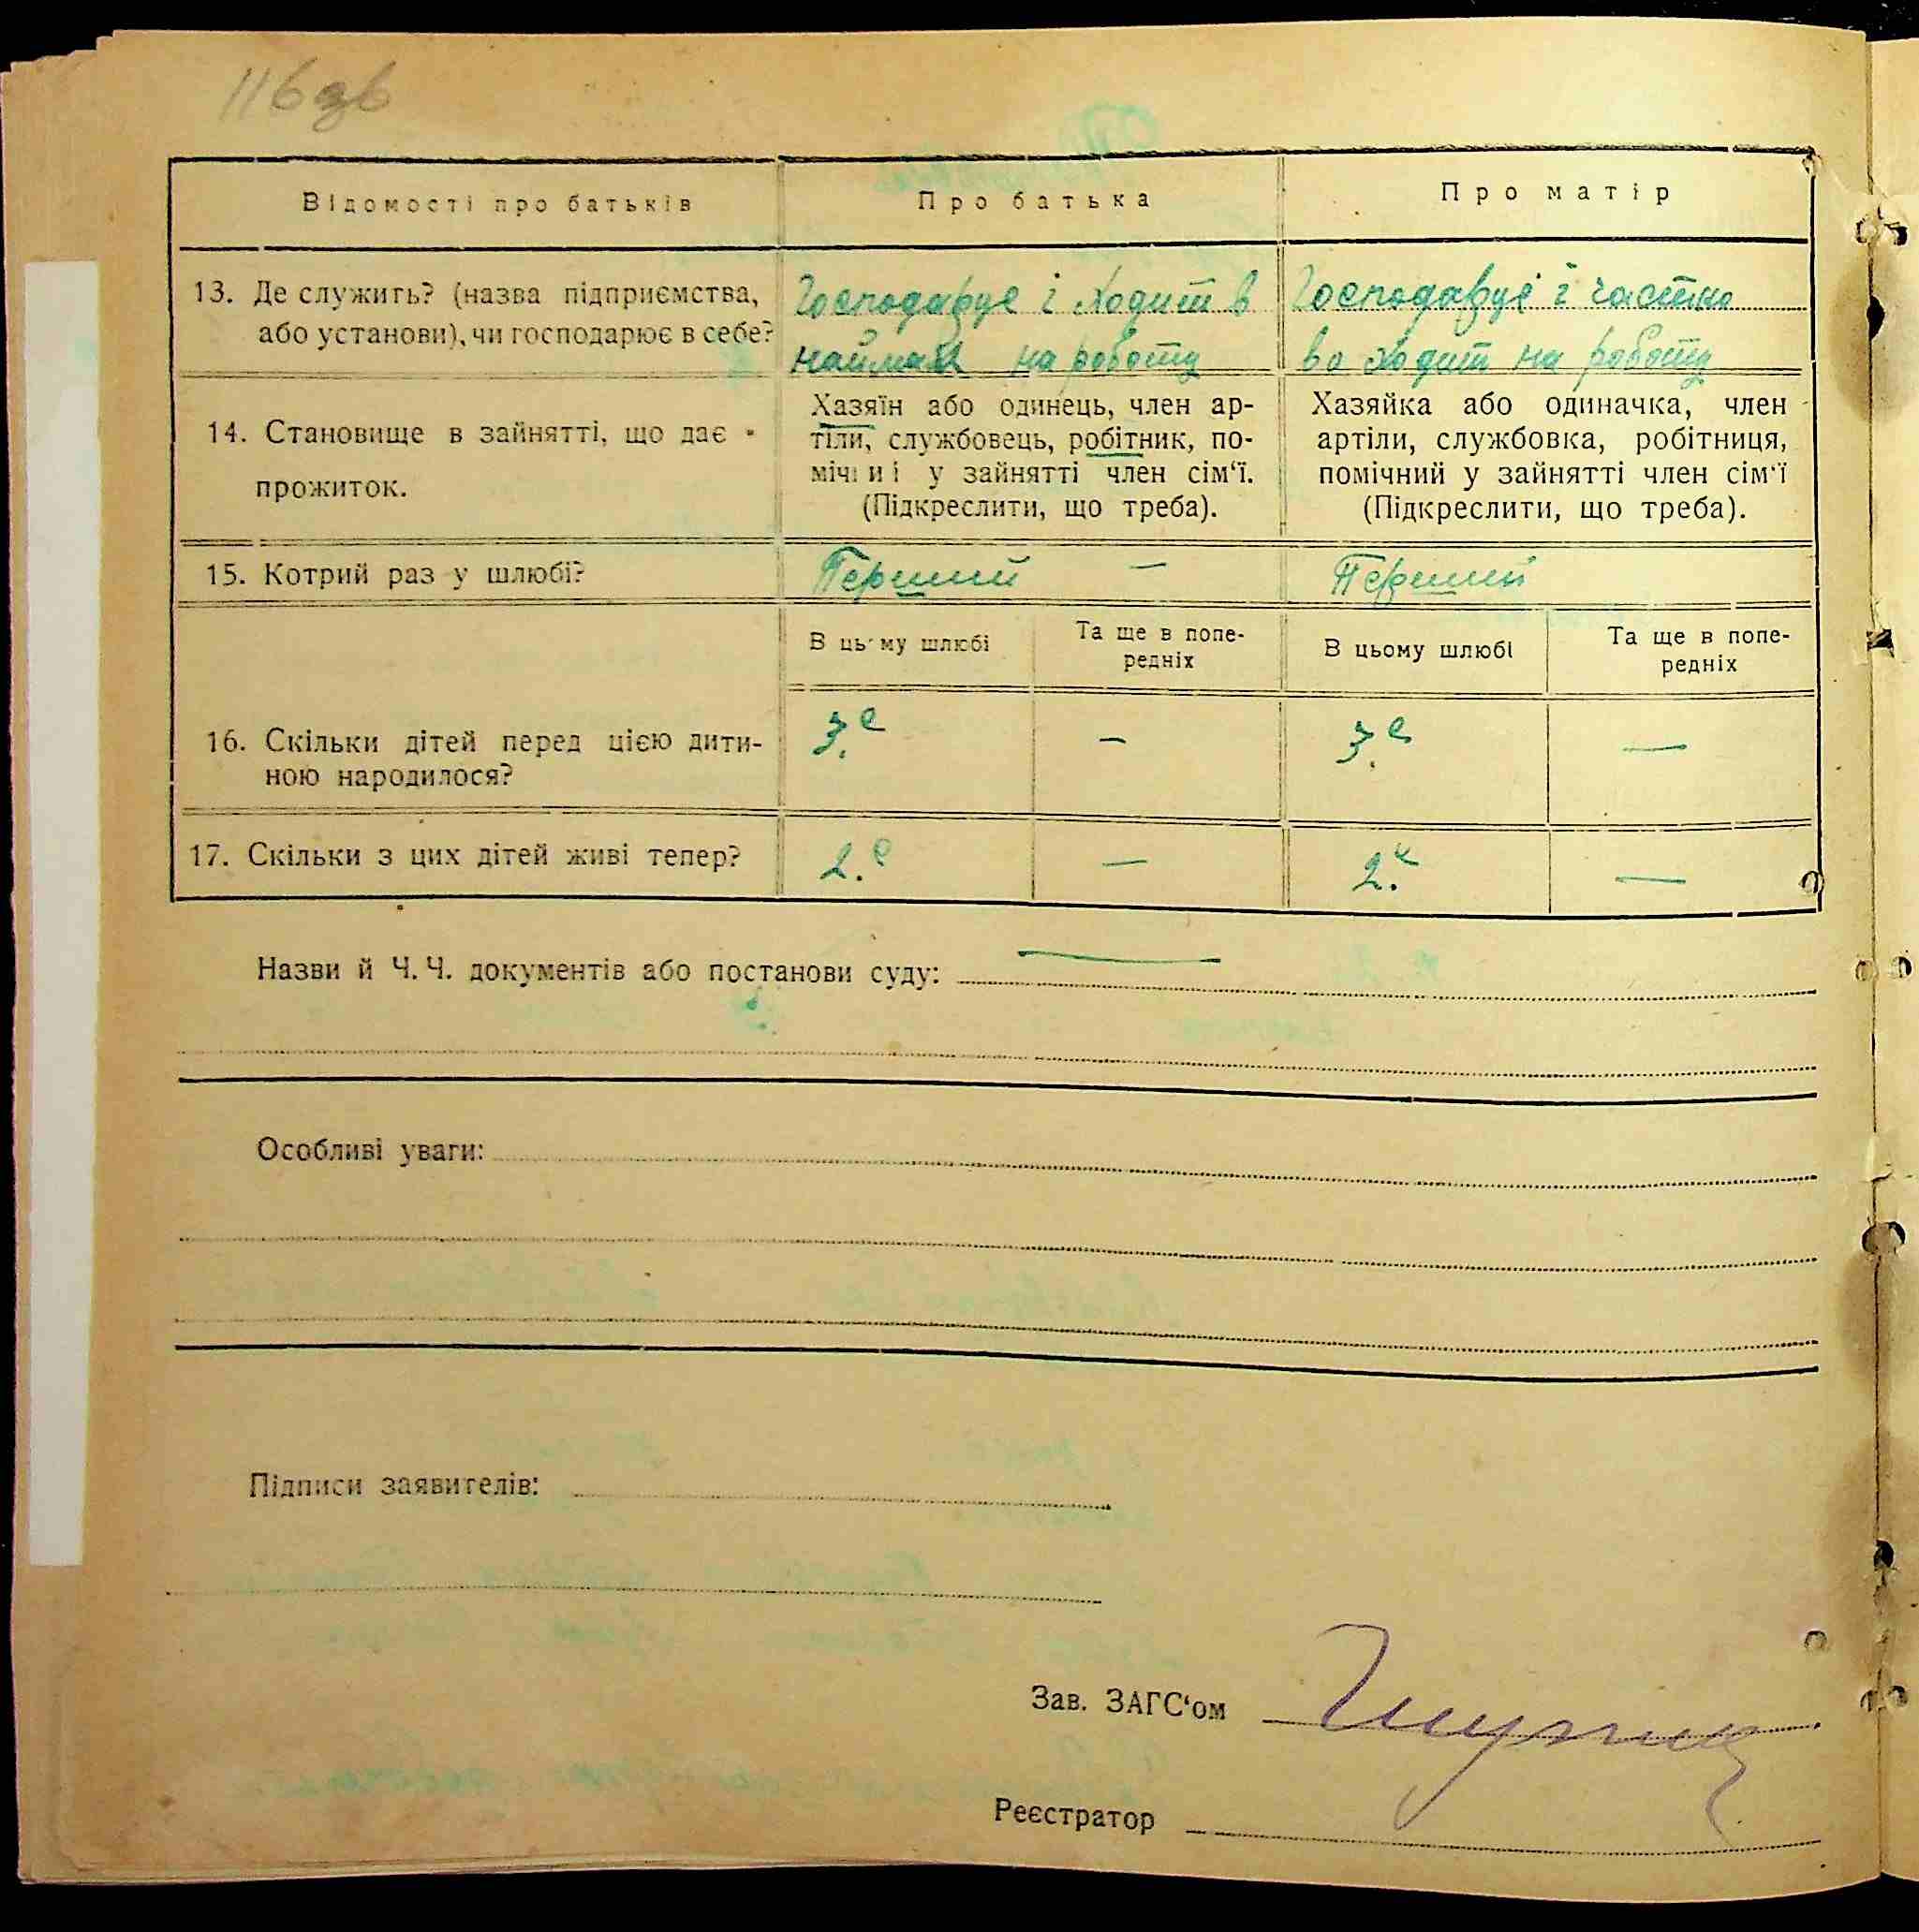 116 зв
Відомості про батьків
Про батька
Про матір
13. Де служить? (назва підприємства,
або установи), чи господарює в себе?
Господарує і ходит в
наймах на роботу
Господарує і частно
во ходит на роботу
14. Становище в зайнятті, що дає
прожиток.
Хазяїн або одинець, член ар-
тіли, службовець, робітник, по-
мічниі у зайнятті член сім‘ї.
(Підкреслити, що треба).
Хазяйка або одиначка, член
артіли, службовка, робітниця,
помічний у зайнятті член сім‘ї
(Підкреслити, що треба).
15. Котрий раз у шлюбі?
Перший —
Перший
В цьому шлюбі
Та ще в попе-
редніх
В цьому шлюбі
Та ще в попе-
редніх
16. Скільки дітей перед цією дити-
ною народилося?
3.е — 3.е —
17. Скільки з цих дітей живі тепер?
2.е — 2.е —
Назви й Ч. Ч. документів або постанови суду: —
Особливі уваги:
Підписи заявителів:
Зав. ЗАГС‘ом
Реєстратор